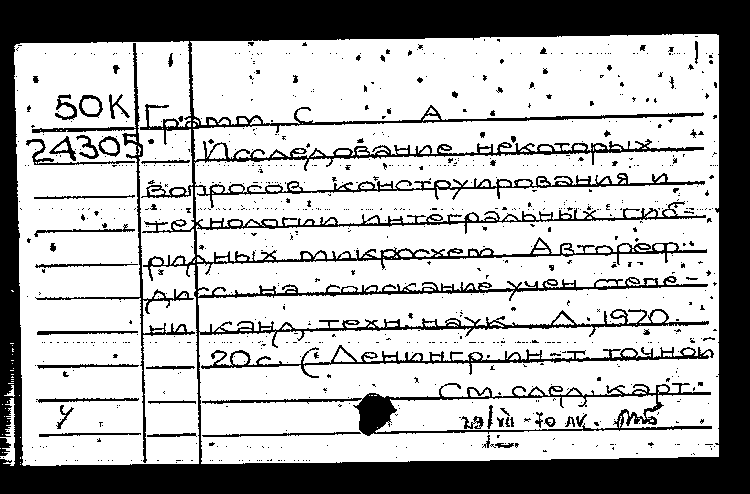 50К Грамм, С А
24305. Исследование некоторых
вопросов конструирования и
технологии интегральных гиб=
ридных микросхем. Автореф.
дисс. на соискание учен степе-
ни канд. техн. наук. Л., 1970.
20с. (Ленингр. ин=т точной
См. след. карт.
У 29/VII -70